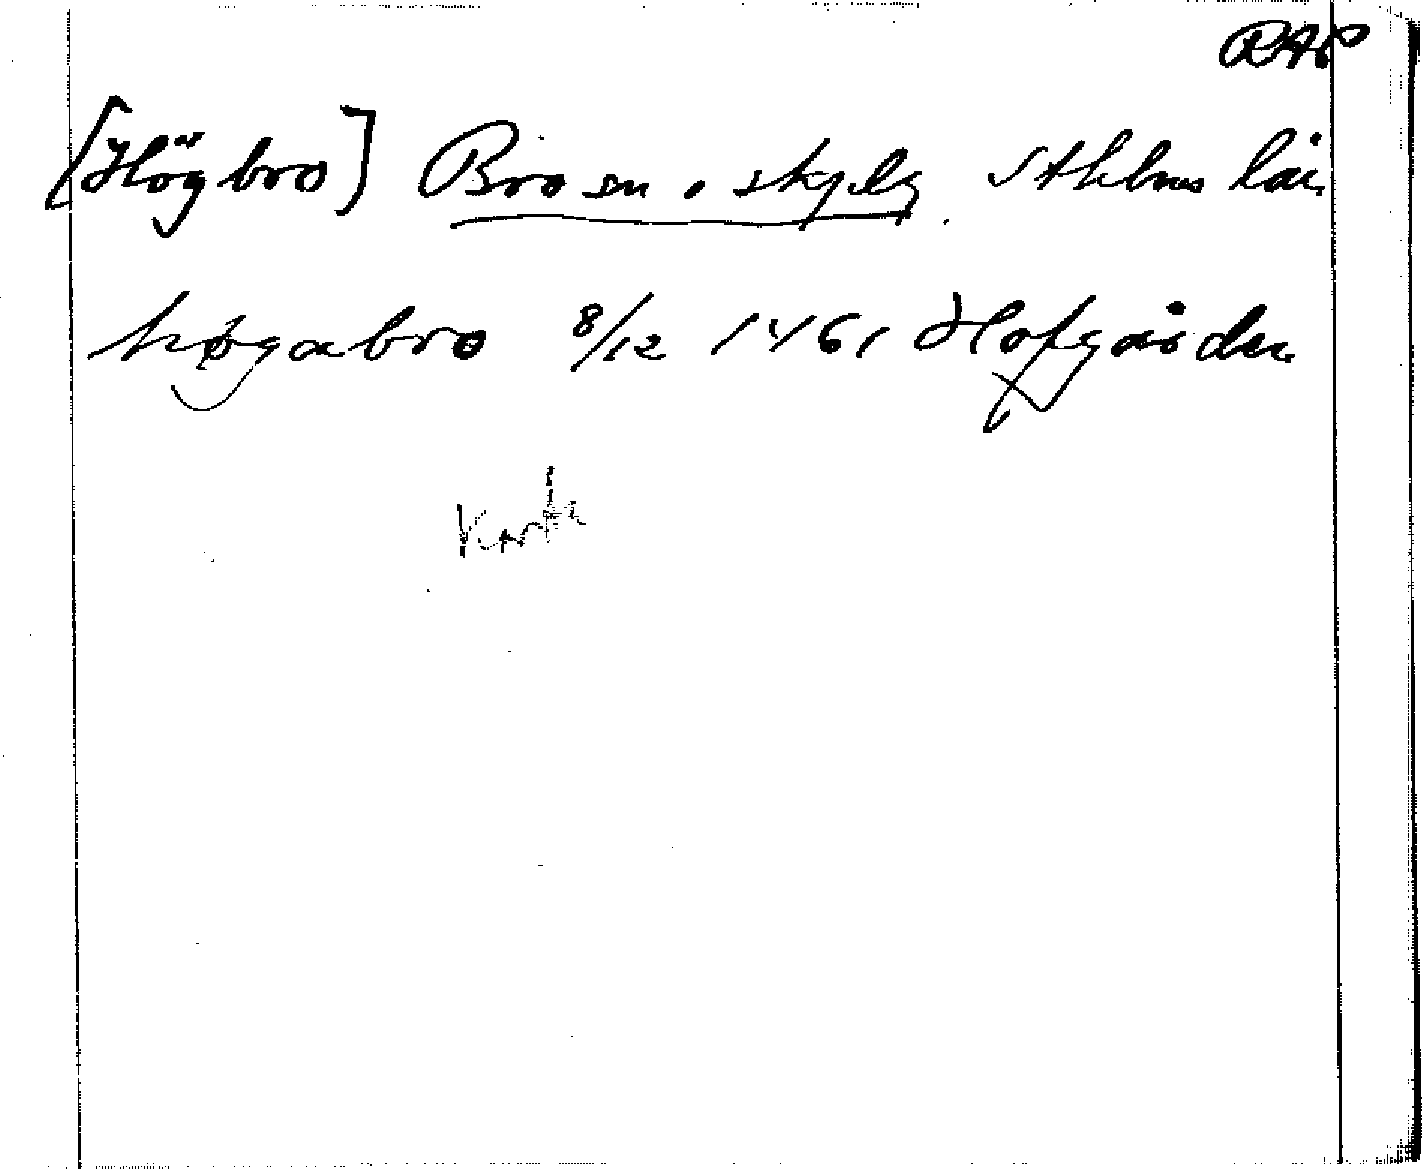 RAP
[Högbro] Bro sn o skplg Sthlms län
høgabro 8/12 1461 Hofgården
Karta